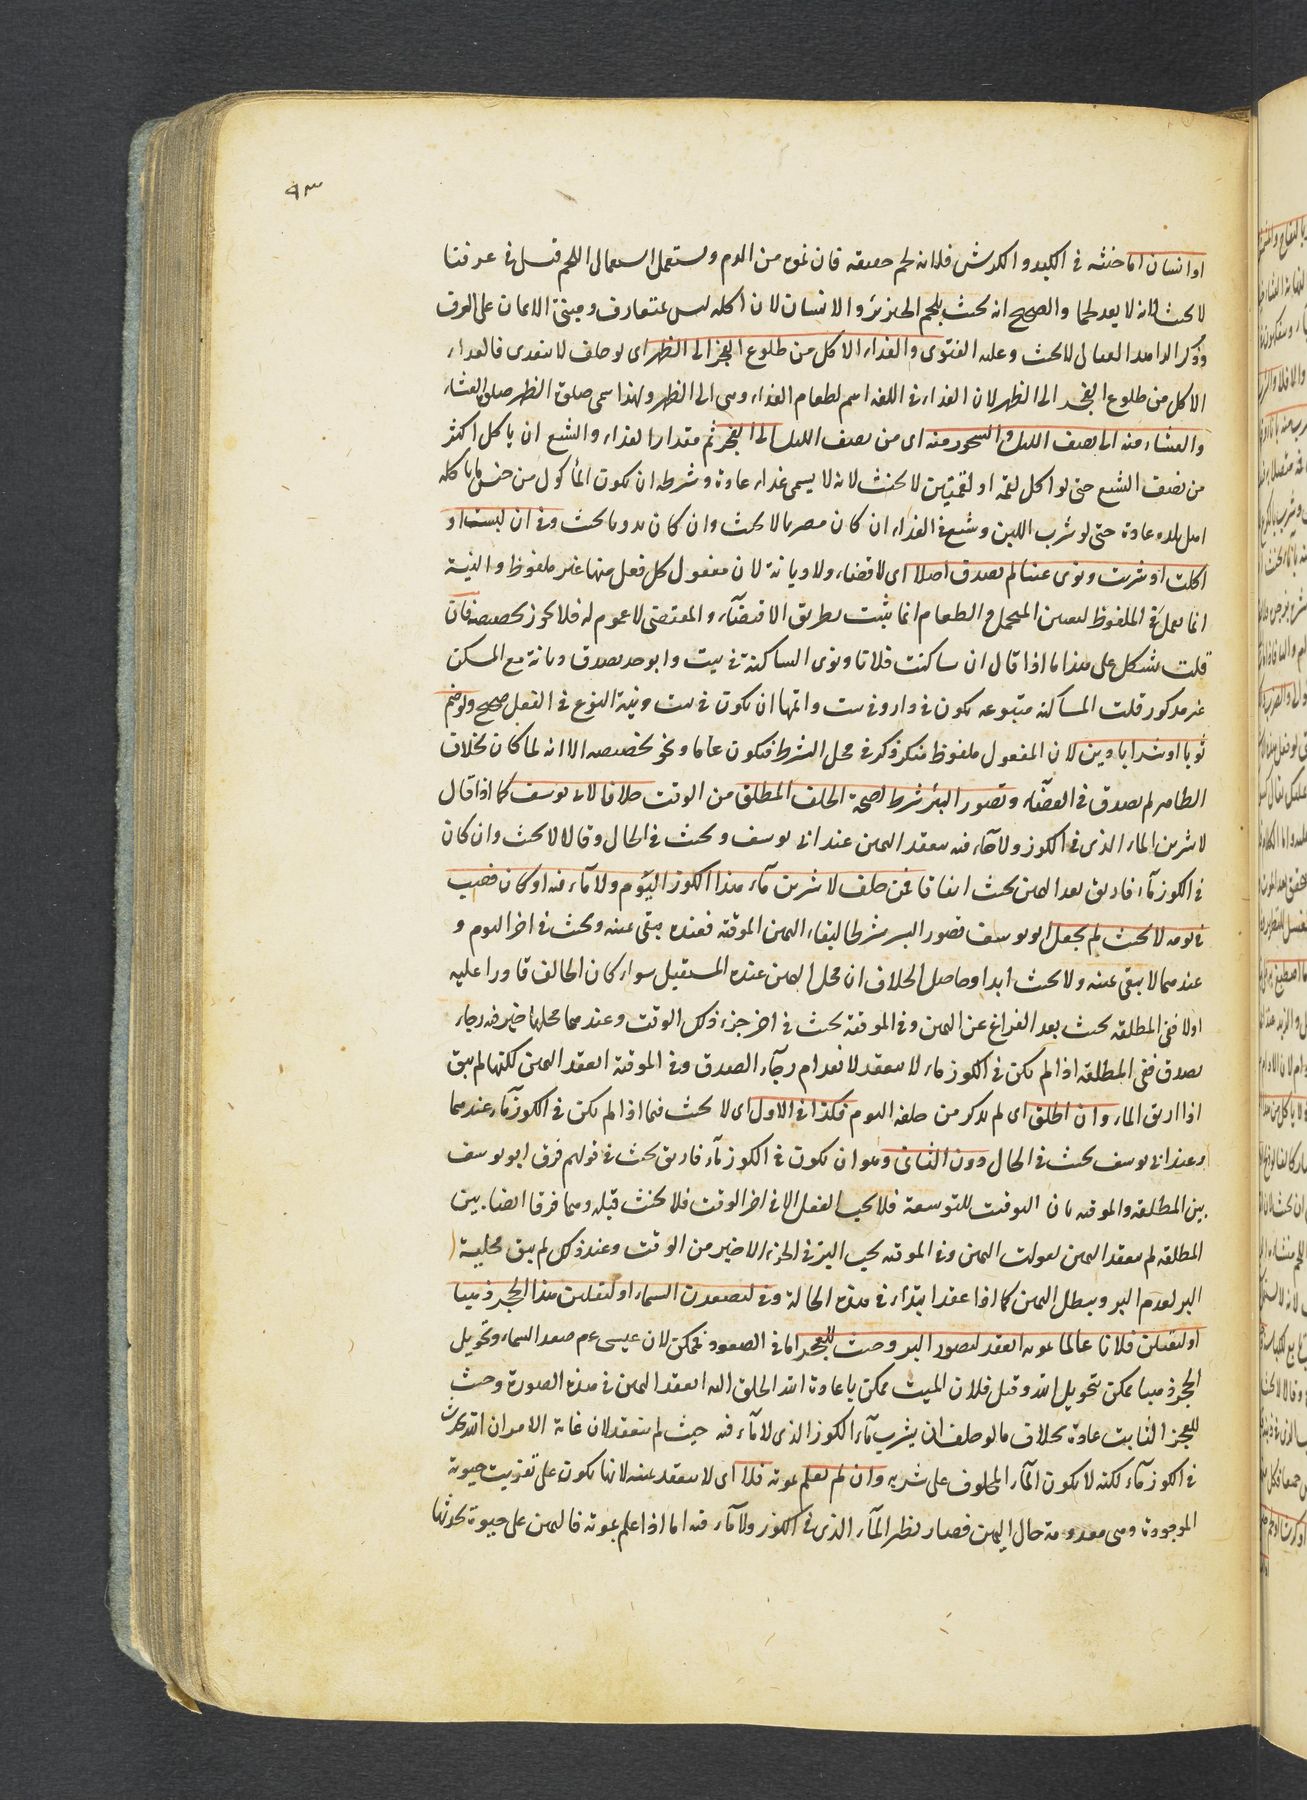 ٩٣
او انسان اما حنثه في الكبد والكرش فلانه لحم حقيقة فان نموه من الدم ويستعمل استعمال اللحم قيل في عرفنا
لا يحنث لانه لا يعد لحما والصحيح انه يحنث بلحم الخنزير والانسان لان اكله ليس بمتعارف ومبنى الايمان على العرف
وذكر الزاهد العتابي لا يحنث وعليه الفتوى والغداء الاكل من طلوع الفجر الى الظهر اى لو حلف لا يتغدى فالغداء
الاكل من طلوع الفجر الى الظهر لان الغداء في اللغة اسم لطعام الغداء وهى الى الظهر ولهذا سمى صلوة الظهر صلوة العشاء
والعشاء منه الى نصف الليل والسحور منه اى من نصف الليل الى الفجر ثم مقدار الغداء والشبع ان ياكل اكثر
من نصف الشبع حتى لو اكل لقمة او لقمتين لا يحنث لانه لا يسمى غداء عادة وشرطه ان يكون المأكول من جنس ما ياكله
اهل بلده عادة حتى لو شرب اللبن وشبع في الغداء ان كان مصريا لا يحنث وان كان بدويا يحنث وفى ان لبست او
اكلت او شربت ونوى عينا لم يصدق اصلا اى لا قضاء ولا ديانة لان مفعول كل فعل منها غير ملفوظ والنية
انما تعمل في الملفوظ لتعين المحتمل والطعام انما يثبت بطريق الاقتضاء والمقتضى لا عموم له فلا يجوز تخصيصه فان
قلت يشكل على هذا ما اذا قال ان ساكنت فلانا ونوى المساكنة في بيت واحد يصدق ديانة مع المسكن
غير مذكور قلت المساكنة متنوعة يكون في دار وفى بيت واتمها ان يكون في بيت ونية النوع في الفعل صحيح ولو ضم
ثوبا او شرابا دين لان المفعول ملفوظ منكر ذكر في محل الشرط فيكون عاما ونحو تخصيصه الا انه لما كان بخلاف
الظاهر لم يصدق في القضاء وتصور البر شرط لصحة الحلف المطلق من الوقت خلافا لابى يوسف كما اذا قال
لاشربن الماء الذى في الكوز ولا ماء فيه ينعقد اليمين عند ابى يوسف ويحنث في الحال وقالا لا يحنث وان كان
في الكوز ماء فاريق بعد اليمين يحنث اتفاقا فمن حلف لاشربن ماء هذا الكوز اليوم ولا ماء فيه او كان فصب
في يومه لا يحنث لم يجعل ابو يوسف تصور البر شرطا لبقاء اليمين الموقتة فعنده يبقى يمينه ويحنث في اخر اليوم و
عندهما لا يبقى يمينه ولا يحنث ابدا وحاصل الخلاف ان محل اليمين عنده المستقبل سواء كان الحالف قادرا عليه
اولا ففى المطلقة يحنث بعد الفراغ عن اليمين وفى الموقتة يحنث في اخر جزء ذلك الوقت وعندهما محلها خبر فيه رجاء
يصدق ففى المطلقة اذا لم يكن في الكوز ماء لا ينعقد لانعدام رجاء الصدق وفى الموقتة انعقد اليمين لكنها لم يبق
اذا اريق الماء وان اطلق اى لم يذكر من حلفه اليوم فكذا في الاول اى لا يحنث فيما اذا لم يكن في الكوز ماء عندهما
وعند ابى يوسف يحنث في الحال دون الثانى وهو ان يكون في الكوز ماء فاريق يحنث في قولهم فرق ابو يوسف
بين المطلقة والموقتة بان التوقيت للتوسعة فلا يجب الفعل الا في اخر الوقت فلا يحنث قبله وهما فرقا ايضا بين
المطلقة لم ينعقد اليمين لفوات اليمين وفى الموقتة يجب البر في الجزء الاخير من الوقت وعند ذلك لم يبق محلية
البر لعدم البر ويبطل اليمين كما اذا عقد ابتداء في هذه الحالة وفى ليصعدن السماء او ليقلبن هذا الحجر ذهبا
او ليقتلن فلانا عالما بموته انعقد لتصور البر وحنث للعجز اما في الصعود فممكن لان عيسى عم صعد السماء وتحويل
الحجر ذهبا ممكن بتحويل الله وقتل فلان الميت ممكن باعادة الله الحيوة اليه انعقد اليمين في هذه الصورة وحنث
للعجز الثابت عادة بخلاف ما لو حلف ان يشرب ماء الكوز الذى لا ماء فيه حيث لم ينعقد لان غاية الامر ان الله يحدث
في الكوز ماء لكنه لا يكون الماء المحلوف على شربه وان لم يعلم بموته فلا اى لا ينعقد يمينه لانها يكون على تفويت حيوته
الموجودة وهى معدومة حال اليمين فصار نظير الماء الذى في الكوز ولا ماء فيه اما اذا علم بموته فاليمين على حيوة يحدثها